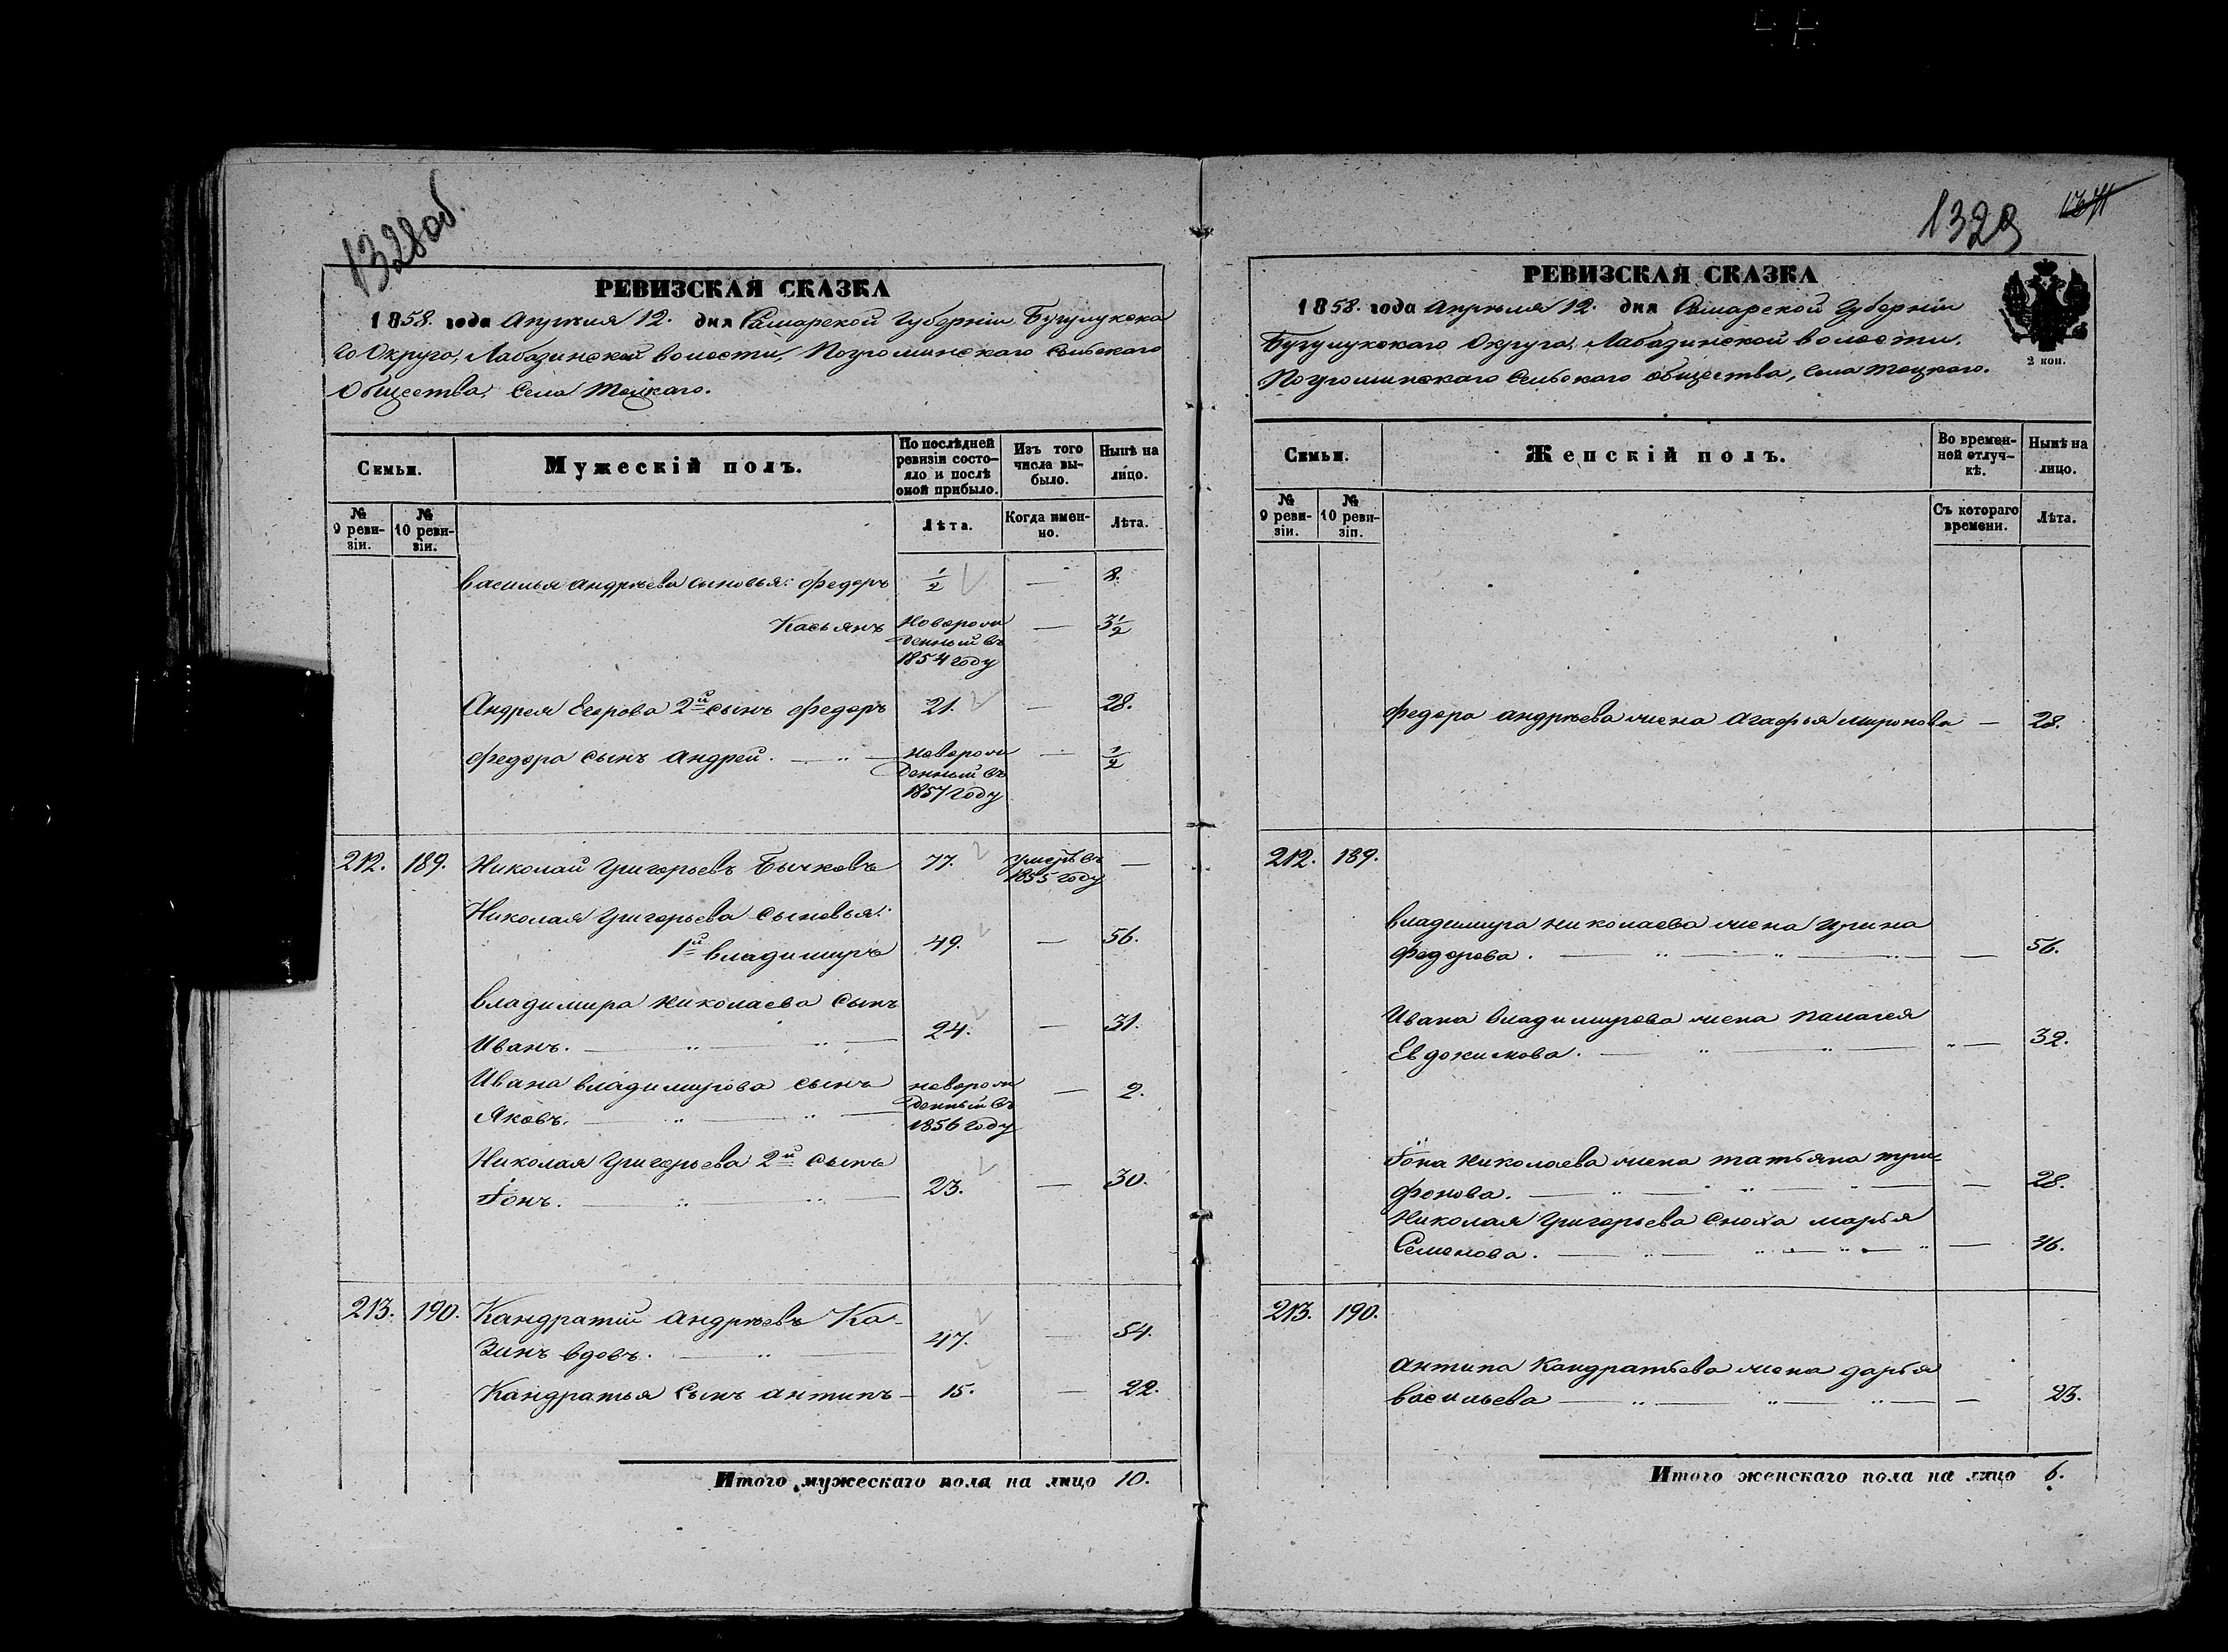 1328 об.
РЕВИЗСКАЯ СКАЗКА
1858. года Апрѣля 12. дня Самарской Губерніи Бугулукска
го Округа, Лабазинской волости, Погроминскаго Сельскаго
Общества, Села Тоцкаго.
Семьи.
Мужескій полъ.
По послѣдней ревизіи состо-
яло и послѣ оной прибыло.
Изъ того числа вы-
было.
Нынѣ на лицо.
№ 9 реви-
зіи.
№ 10 реви-
зіи.
Лѣта.
Когда имен-
но.
Лѣта.
Василья Андрѣева сыновья: Федоръ 1/2 — 8.
Касьянъ новорож
денный въ
1854 году — 3 1/2
Андрея Егорова 2й сынъ Федоръ 21. — 28.
Федора сынъ Андрей. новорож
денный въ
1857 году — 1/2
212. 189. Николай Григорьевъ Бычковъ 77. умеръ въ
1855 году —
Николая Григорьева сыновья:
1й Владимиръ 49. — 56.
Владимира Николаева сынъ
Иванъ. 24. — 31.
Ивана Владимирова сынъ
Яковъ. новорож
денный въ
1856 году — 2.
Николая Григорьева 2й сынъ
Іонъ. 23. — 30.
213. 190. Кандратий Андрѣевъ Ка-
зинъ вдовъ. 47. — 54.
Кандратья сынъ Антипъ — 15. — 22.
Итого мужескаго пола на лицо 10.
1329
РЕВИЗСКАЯ СКАЗКА
1858. года Апрѣля 12. дня Самарской Губерніи
Бугулукскаго Округа, Лабазинской волости,
Погроминскаго Сельскаго общества, села Тоцкаго.
2 коп.
Семьи.
Женскій полъ.
Во времен-
ной отлуч-
кѣ.
Нынѣ на лицо.
№ 9 реви-
зіи.
№ 10 реви-
зіи.
Съ котораго времени.
Лѣта.
Федора Андрѣева жена Агафья Миронова — 28.
212. 189.
Владимира Николаева жена Ирина
Федорова. — 56.
Ивана Владимирова жена Палагея
Евдокимова. — 32.
Іона Николаева жена Татьяна Три-
фонова. — 28.
Николая Григорьева сноха Марья
Семенова. — 46.
213. 190.
Антипа Кандратьева жена Дарья
Васильева — 23.
Итого женскаго пола на лицо 6.